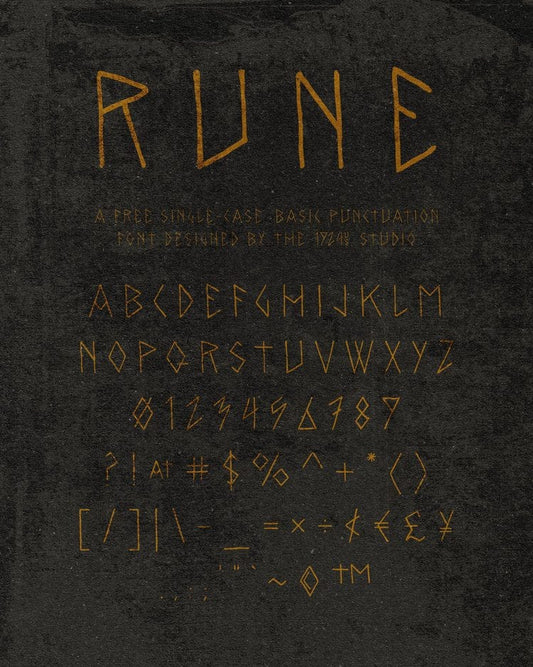 RUNE
A FREE SINGLE-CASE, BASIC PUNCTUATION
FONT DESIGNED BY THE STUDIO
ABCDEFGHIJKLM
NOPQRSTUVWXYZ
0123456789
?!At#$%^+*()
[/]|\-_=×÷¢€£¥
.,,'"`~◊™